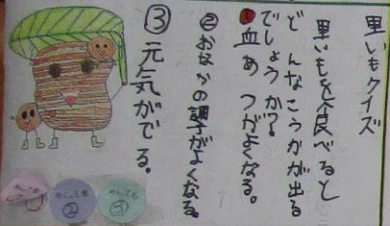 里いもクイズ
里いもを食べると
どんなこうかが出る
でしょうか?
①血あつがよくなる。
②おなかの調子がよくなる。
③元気がでる。
②
③